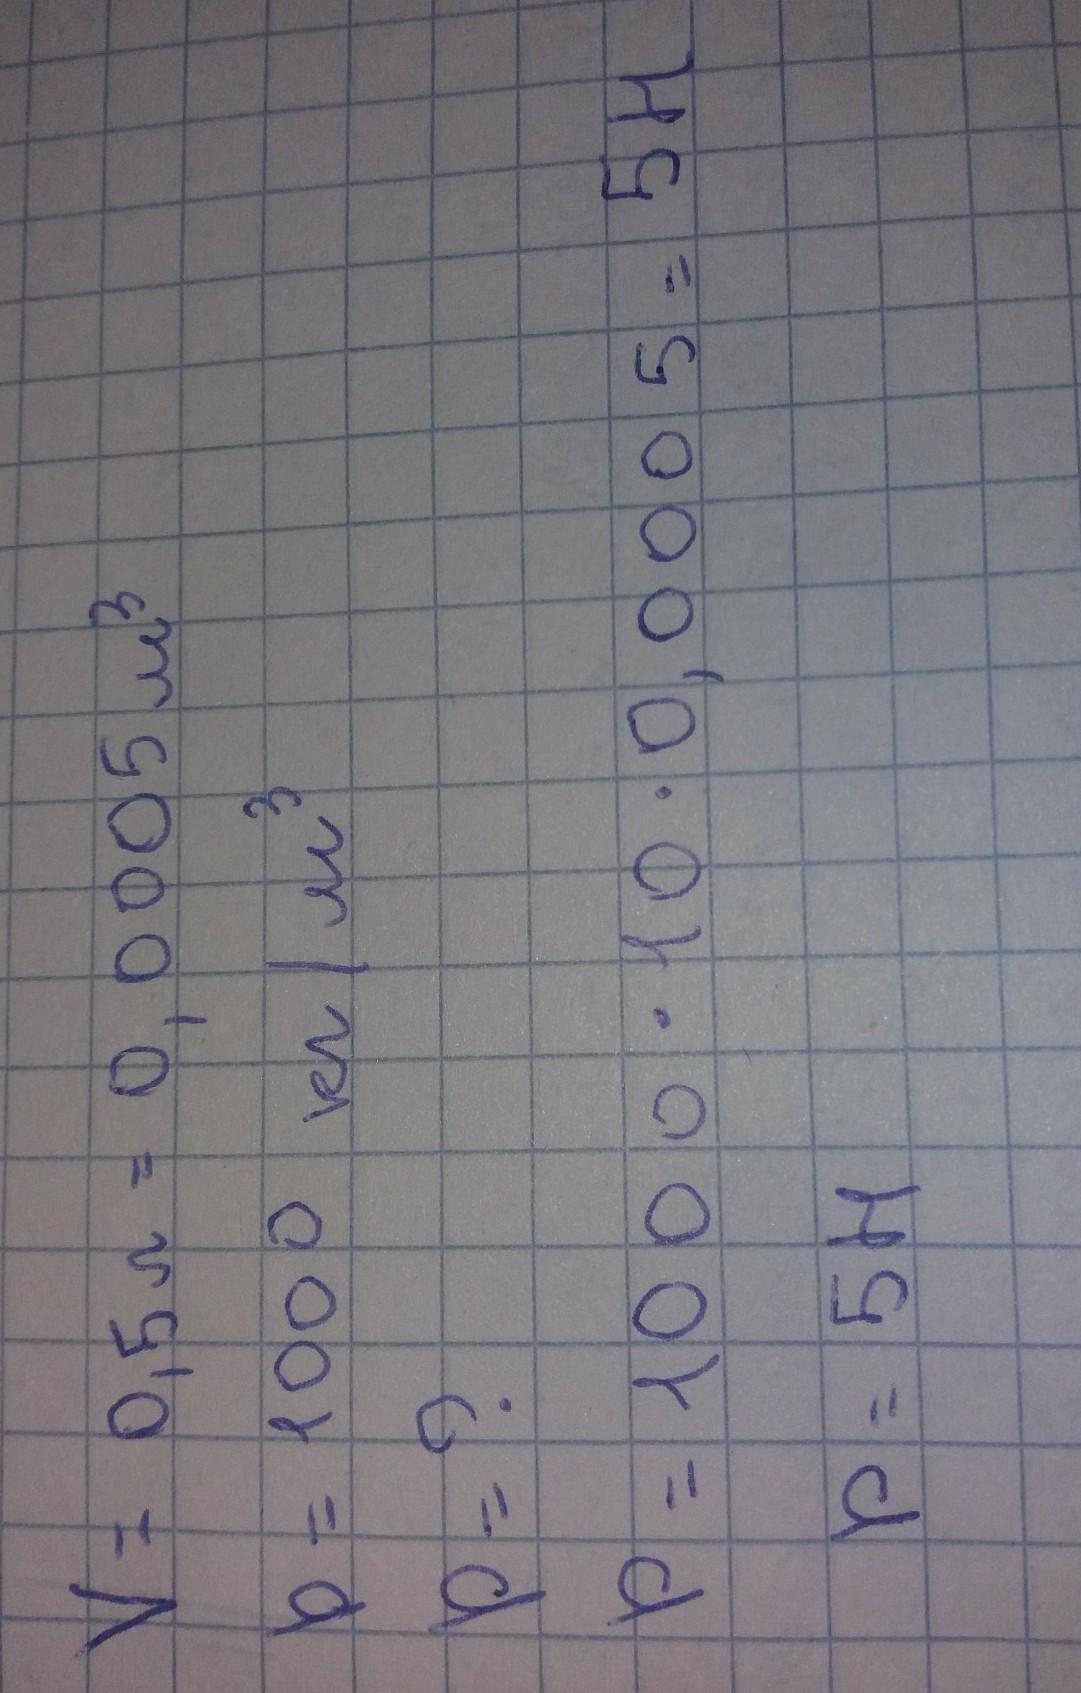 V = 0,5 л = 0,0005 м³
p = 1000 кг/м³
p = ?
p = 1000 · 10 · 0,0005 = 5Н
p = 5Н